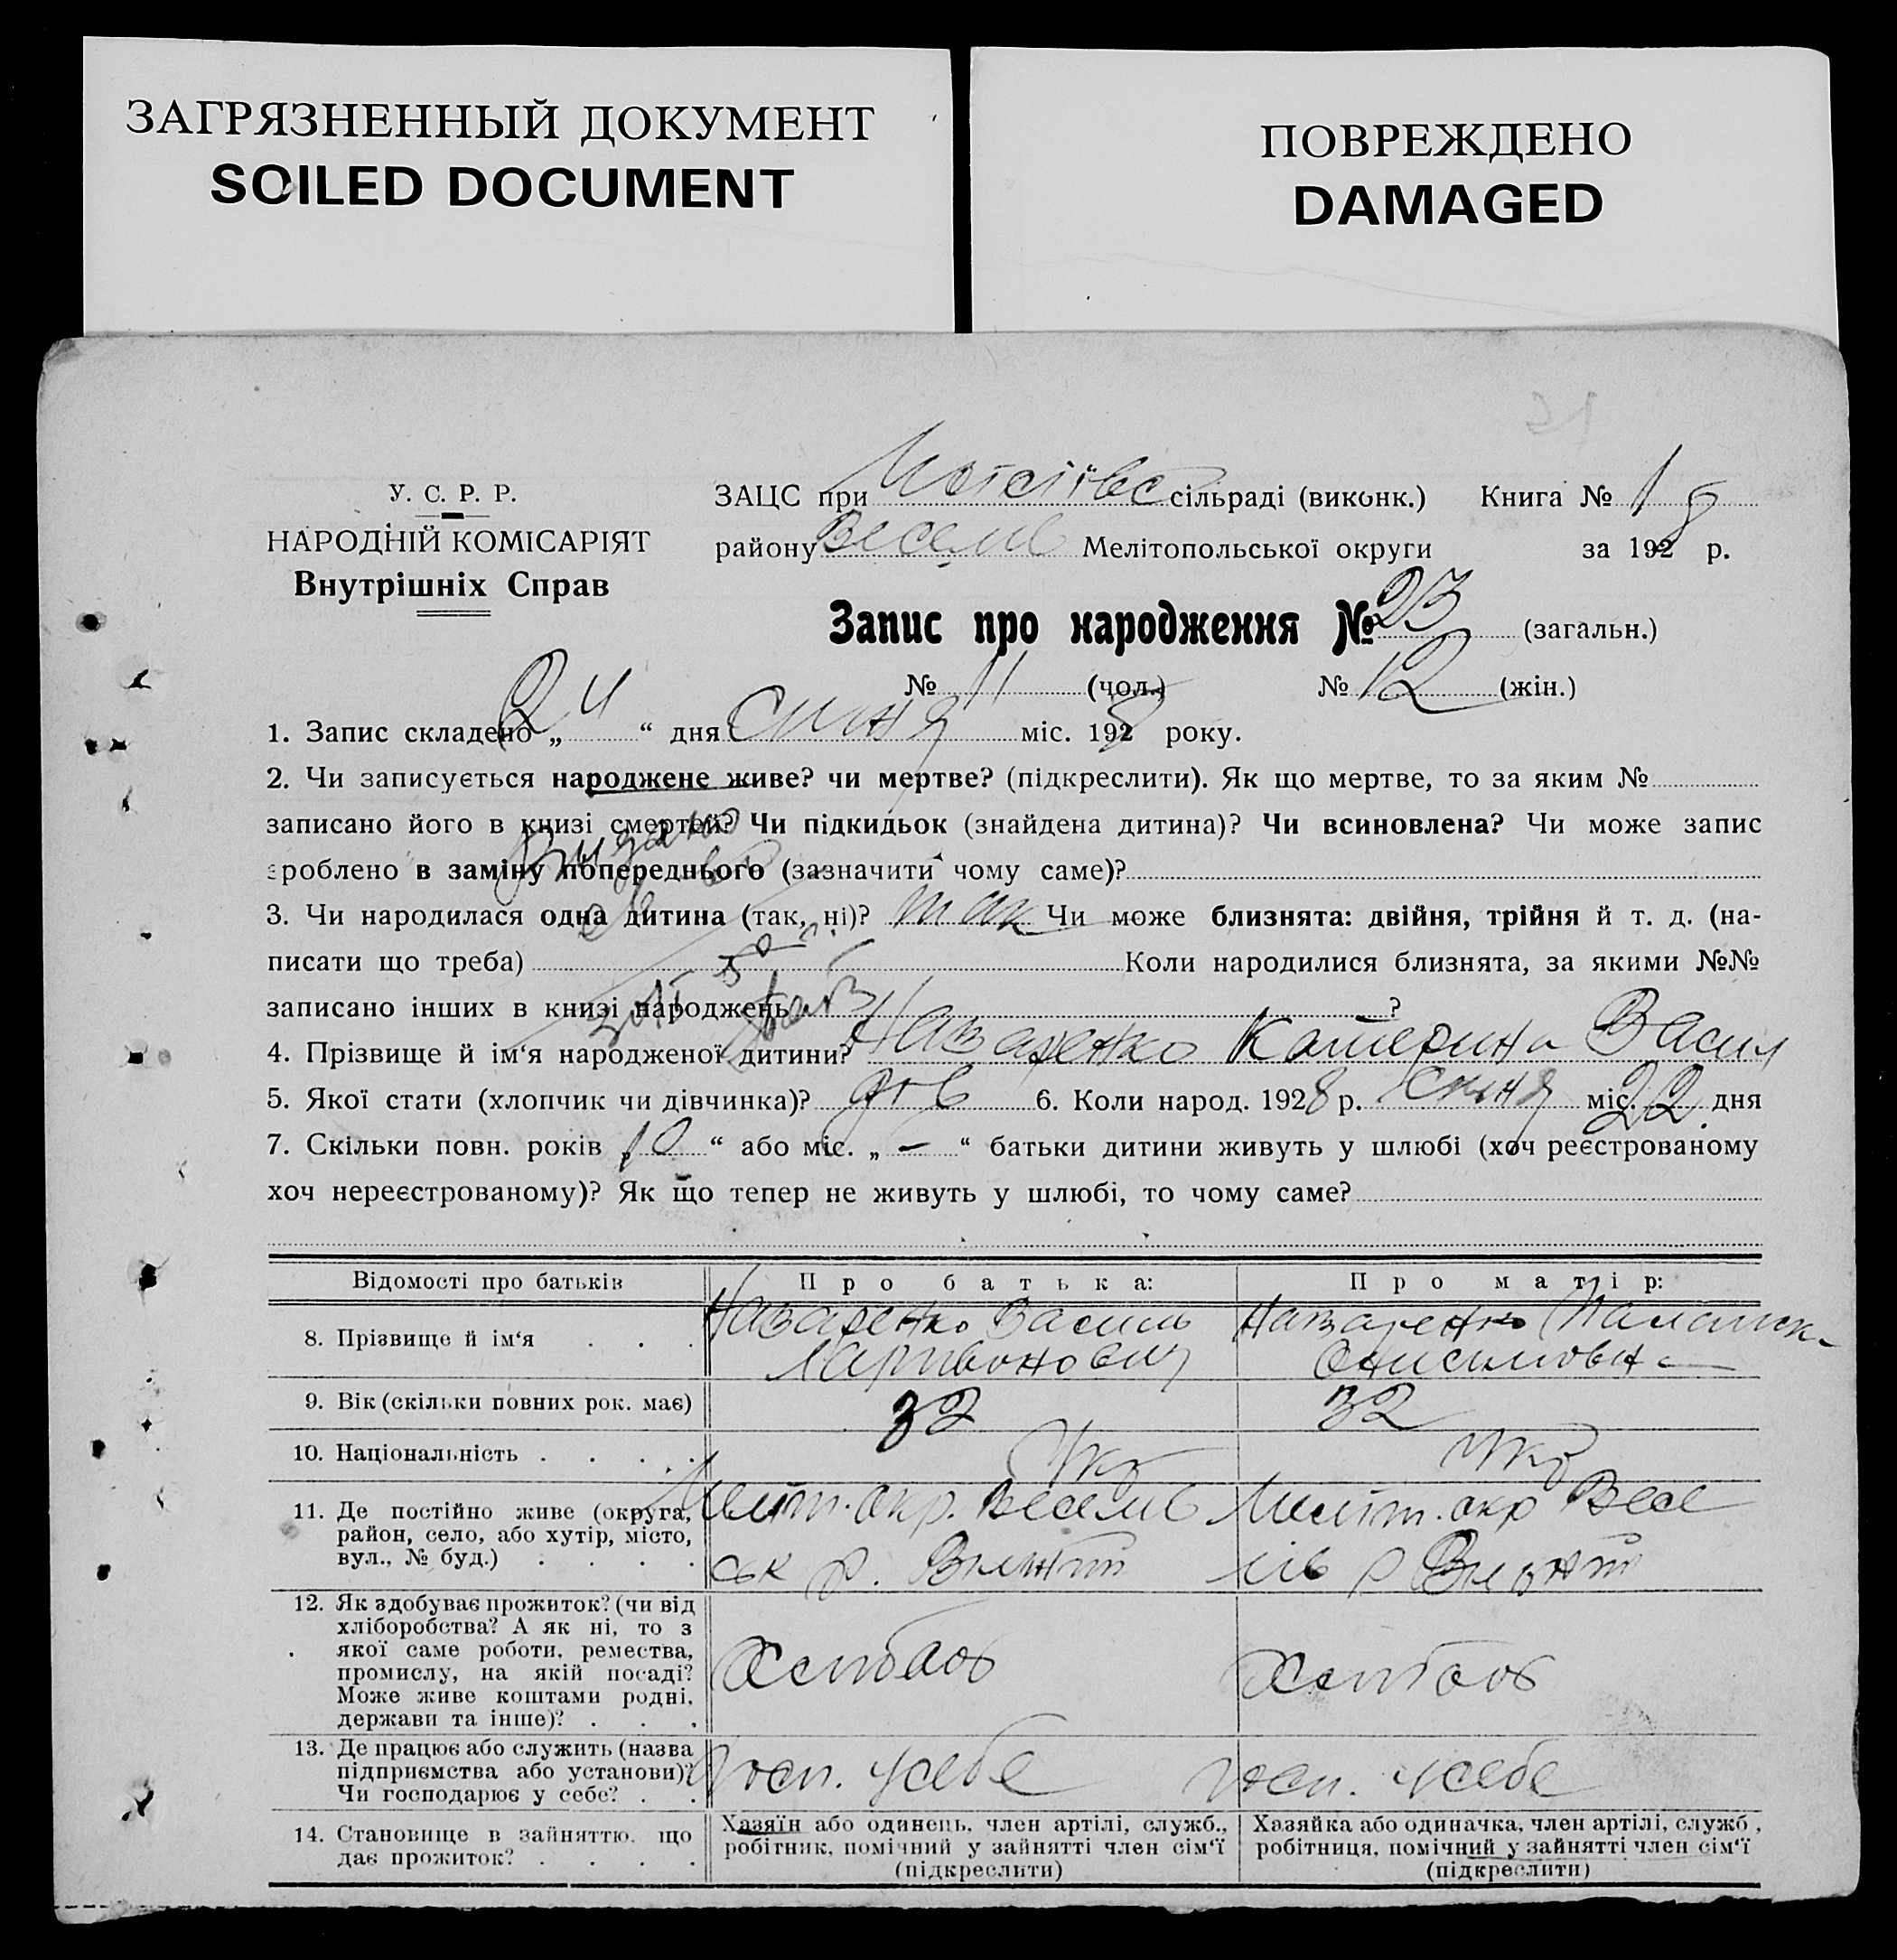 ЗАГРЯЗНЕННЫЙ ДОКУМЕНТ
SOILED DOCUMENT
ПОВРЕЖДЕНО
DAMAGED
У. С. Р. Р.
НАРОДНІЙ КОМІСАРІЯТ
Внутрішніх Справ
ЗАЦС при сільраді (виконк.) Книга № 1
району Весели Мелітопольської округи за 1928 р.
Запис про народження № 23 (загальн.)
№ 11 (чол.) № 12 (жін.)
1. Запис складено „24“ дня Сичня міс. 1928 року.
2. Чи записується народжене живе? чи мертве? (підкреслити). Як що мертве, то за яким №
записано його в книзі смертей? Чи підкидьок (знайдена дитина)? Чи всиновлена? Чи може запис
зроблено в заміну попереднього (зазначити чому саме)?
3. Чи народилася одна дитина (так, ні)? так Чи може близнята: двійня, трійня й т. д. (на-
писати що треба) Коли народилися близнята, за якими №№
записано інших в книзі народжень ?
4. Прізвище й ім‘я народженої дитини? Назаренко Катерина Васил
5. Якої стати (хлопчик чи дівчинка)? дів 6. Коли народ. 1928 р. Сичня міс. 22 дня
7. Скільки повн. років „10“ або міс. „–“ батьки дитини живуть у шлюбі (хоч реєстрованому
хоч нереєстрованому)? Як що тепер не живуть у шлюбі, то чому саме?
Відомості про батьків Про батька: Про матір:
8. Прізвище й ім‘я . . . Назаренко Василь Назаренко Палажк
Ларивонович Онисимовна
9. Вік (скільки повних рок. має) 32 32
10. Національність . . . . Укр Укр
11. Де постійно живе (округа, Меліт. окр. Весели Меліт. окр Весе
район, село, або хутір, місто,
вул., № буд.) . . . .
12. Як здобуває прожиток? (чи від
хліборобства? А як ні, то з
якої саме роботи, ремества, Хлібоб Хлібоб
промислу, на якій посаді?
Може живе коштами родні,
держави та інше)? . . .
13. Де працює або служить (назва
підприємства або установи)? Госп. у себе госп. у себе
Чи господарює у себе? . .
14. Становище в зайняттю, що
дає прожиток? . . . .
Хазяїн або одинець, член артілі, служб.,
робітник, помічний у зайнятті член сім‘ї
(підкреслити)
Хазяйка або одиначка, член артілі, служб.,
робітниця, помічний у зайнятті член сім‘ї
(підкреслити)